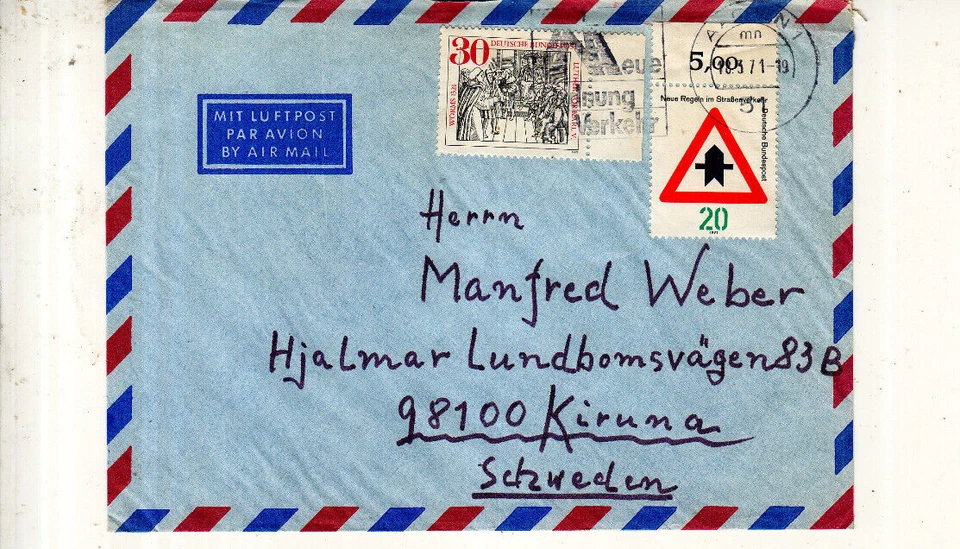 MIT LUFTPOST
PAR AVION
BY AIR MAIL
30 DEUTSCHE BUNDESPOST
WORMS 1521
5,00
Neue Regeln im Straßenverkehr
Deutsche Bundespost
20
mn
-19
51
Herrn
Manfred Weber
Hjalmar Lundbomsvägen 83 B
98100 Kiruna
Schweden